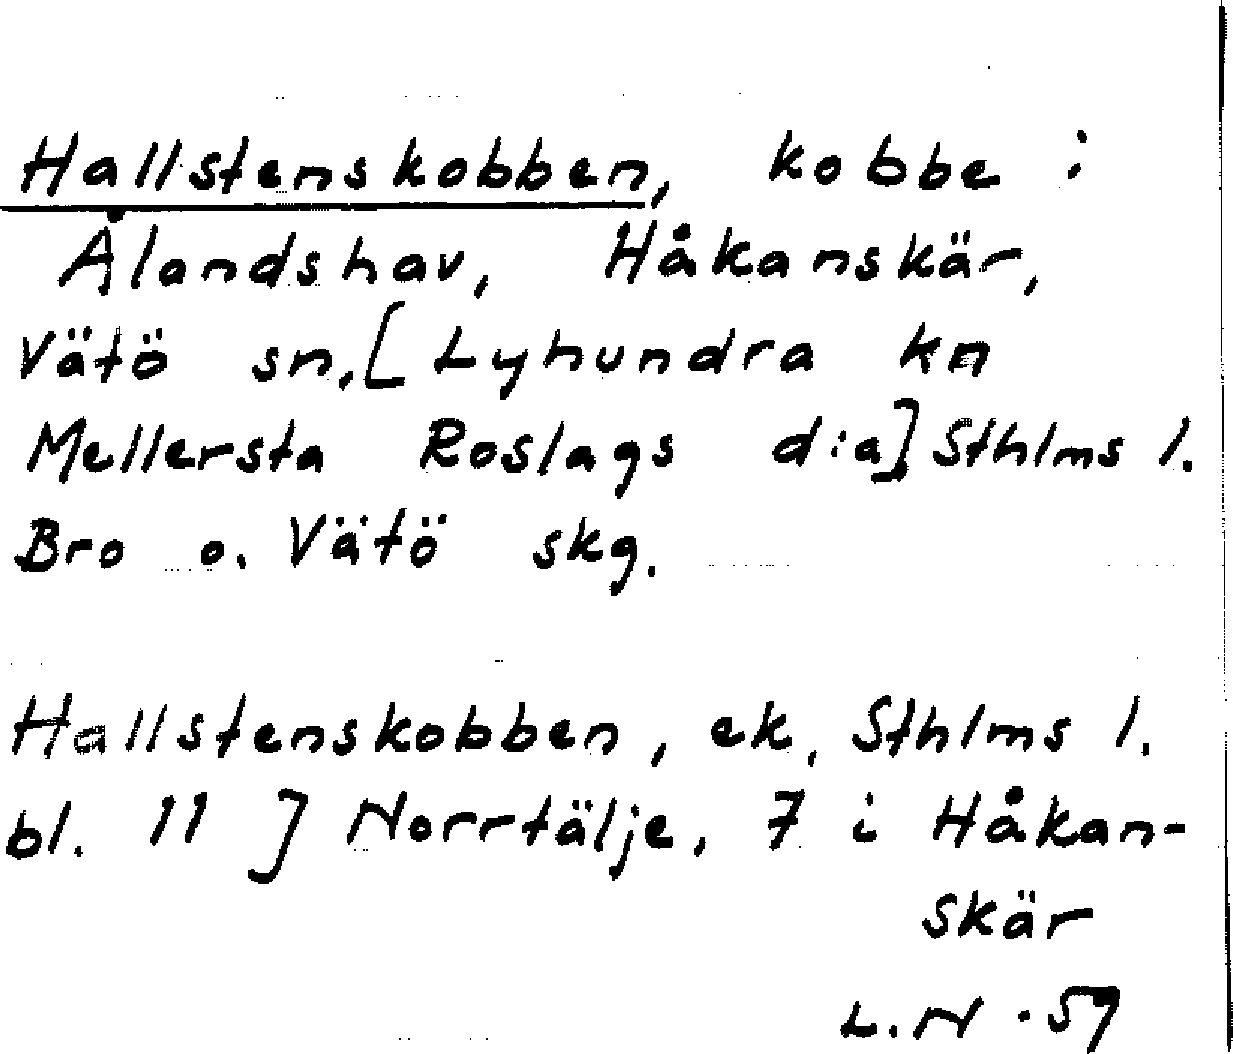 Hallstenskobben, kobbe i
Ålandshav, Håkanskär,
Vätö sn, [Lyhundra kn
Mellersta Roslags dia] Sthlms l.
Bro o. Vätö skg.
Hallstenskobben, ek, Sthlms l.
bl. 11 J Norrtälje, 7 i Håkan-
skär
L.N. 57